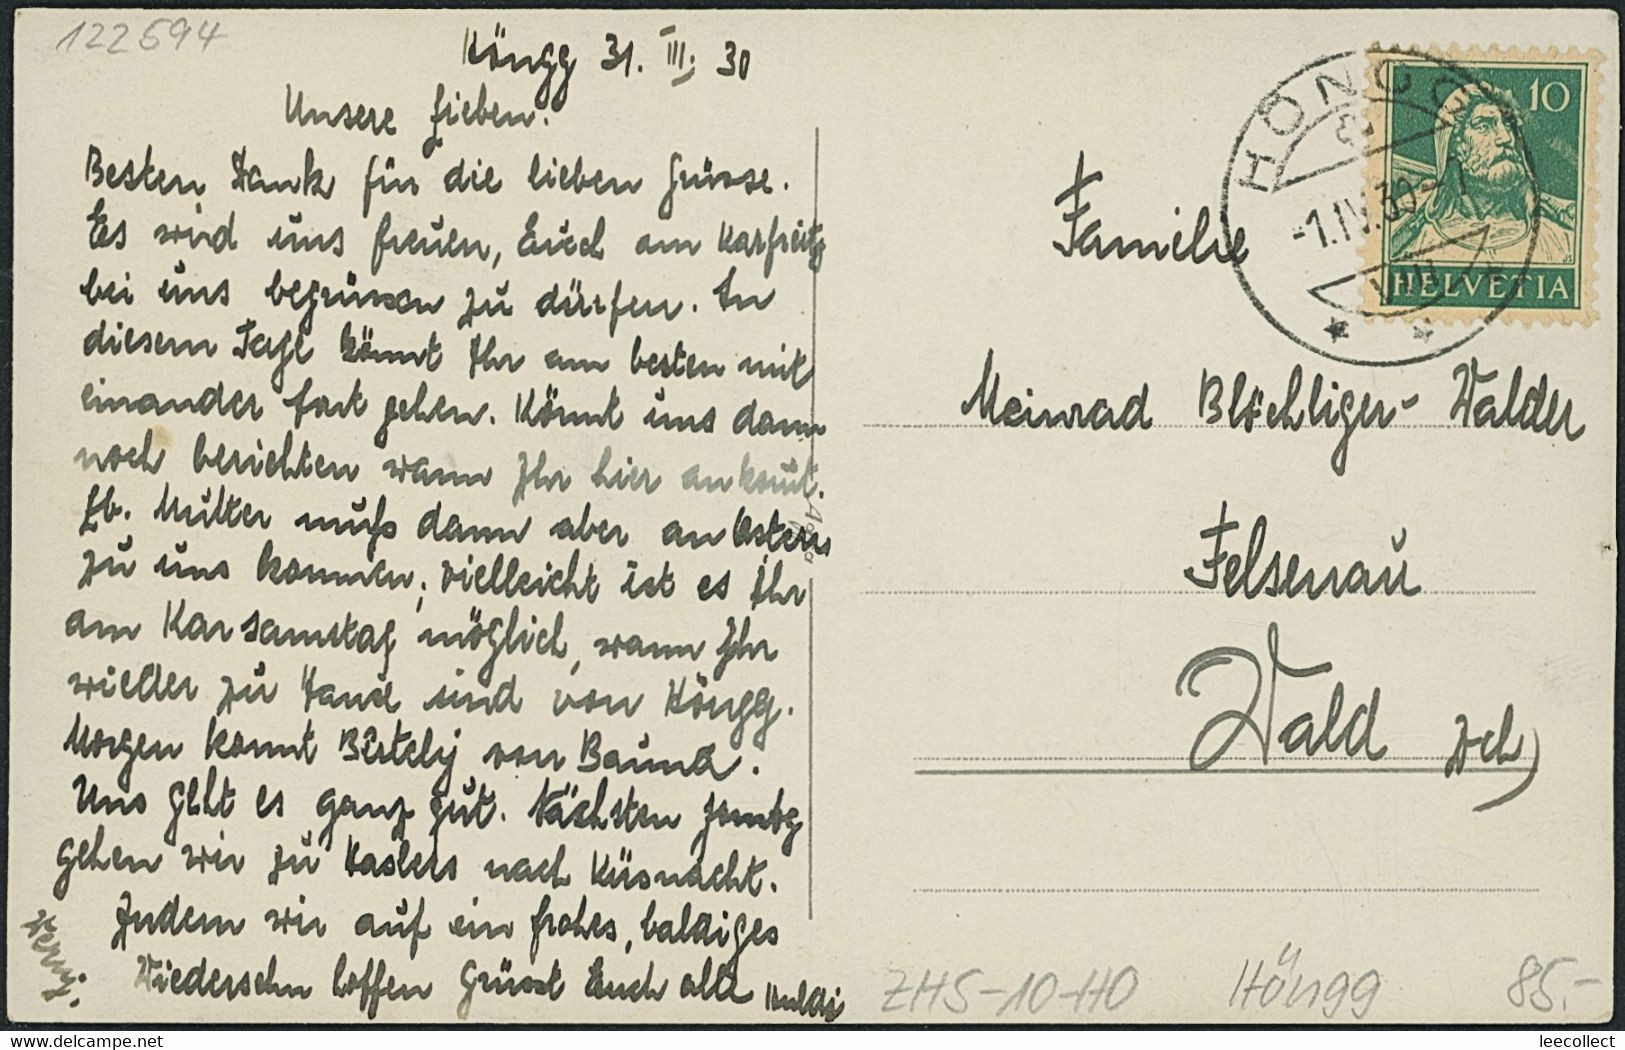 122594
Höngg 31. III. 30
Unsere Lieben.
Besten Dank für die lieben Grüsse.
Es wird uns freuen, Euch am Karfreitg
bei uns begrüssen zu dürfen. An
diesem Tage könnt Ihr am besten mit
einander fort gehen. Könnt uns dann
noch berichten wann Ihr hier ankomt.
Lb. Mutter muss dann aber an Ostern
zu uns kommen, vielleicht ist es Ihr
am Karsamstag möglich, wann Ihr
wieder zu Hause sind von Höngg.
Morgen kommt Bertely von Bauma.
Uns geht es ganz gut. Nächsten
gehen wir zu Haslers nach Küsnacht.
Indem wir auf ein frohes, baldiges
Wiedersehn hoffen Grüsst Euch alle Huldi
Familie
Meinrad Blöchliger-Walder
Felsenau
Wald Zch)
HÖNGG
-1.IV.30-7
10
HELVETIA
ZHS-10-HÖ Höngg 85.-
www.delcampe.net
leecollect